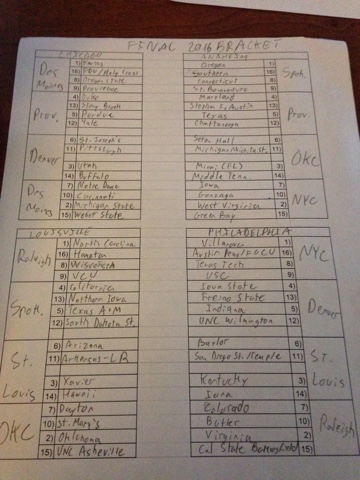 FINAL 2016 BRACKET
CHICAGO
Des Moines
1) Kansas
16) FDU/Holy Cross
8) Oregon State
9) Providence
Prov.
4) Duke
13) Stony Brook
5) Purdue
12) Yale
Denver
6) St. Joseph's
11) Pittsburgh
3) Utah
14) Buffalo
Des Moines
7) Notre Dame
10) Cincinnati
2) Michigan State
15) Weber State
ANAHEIM
Oregon 1)
Southern 16)
Connecticut 8)
St. Bonaventure 9)
Spok.
Maryland 4)
Stephen F. Austin 13)
Texas 5)
Chattanooga 12)
Prov.
Seton Hall 6)
Michigan 11)
Miami (FL) 3)
Middle Tenn. 14)
OKC
Iowa 7)
Gonzaga 10)
West Virginia 2)
Green Bay 15)
NYC
LOUISVILLE
Raleigh
1) North Carolina
16) Hampton
8) Wisconsin
9) VCU
Spok.
4) California
13) Northern Iowa
5) Texas A+M
12) South Dakota St.
St. Louis
6) Arizona
11) Arkansas-LR
3) Xavier
14) Hawaii
OKC
7) Dayton
10) St. Mary's
2) Oklahoma
15) UNC Asheville
PHILADELPHIA
Villanova 1)
Austin Peay/FGCU 16)
Texas Tech 8)
USC 9)
NYC
Iowa State 4)
Fresno State 13)
Indiana 5)
UNC Wilmington 12)
Denver
Baylor 6)
San Diego St./Temple 11)
Kentucky 3)
Iona 14)
St. Louis
Colorado 7)
Butler 10)
Virginia 2)
Cal State Bakersfield 15)
Raleigh